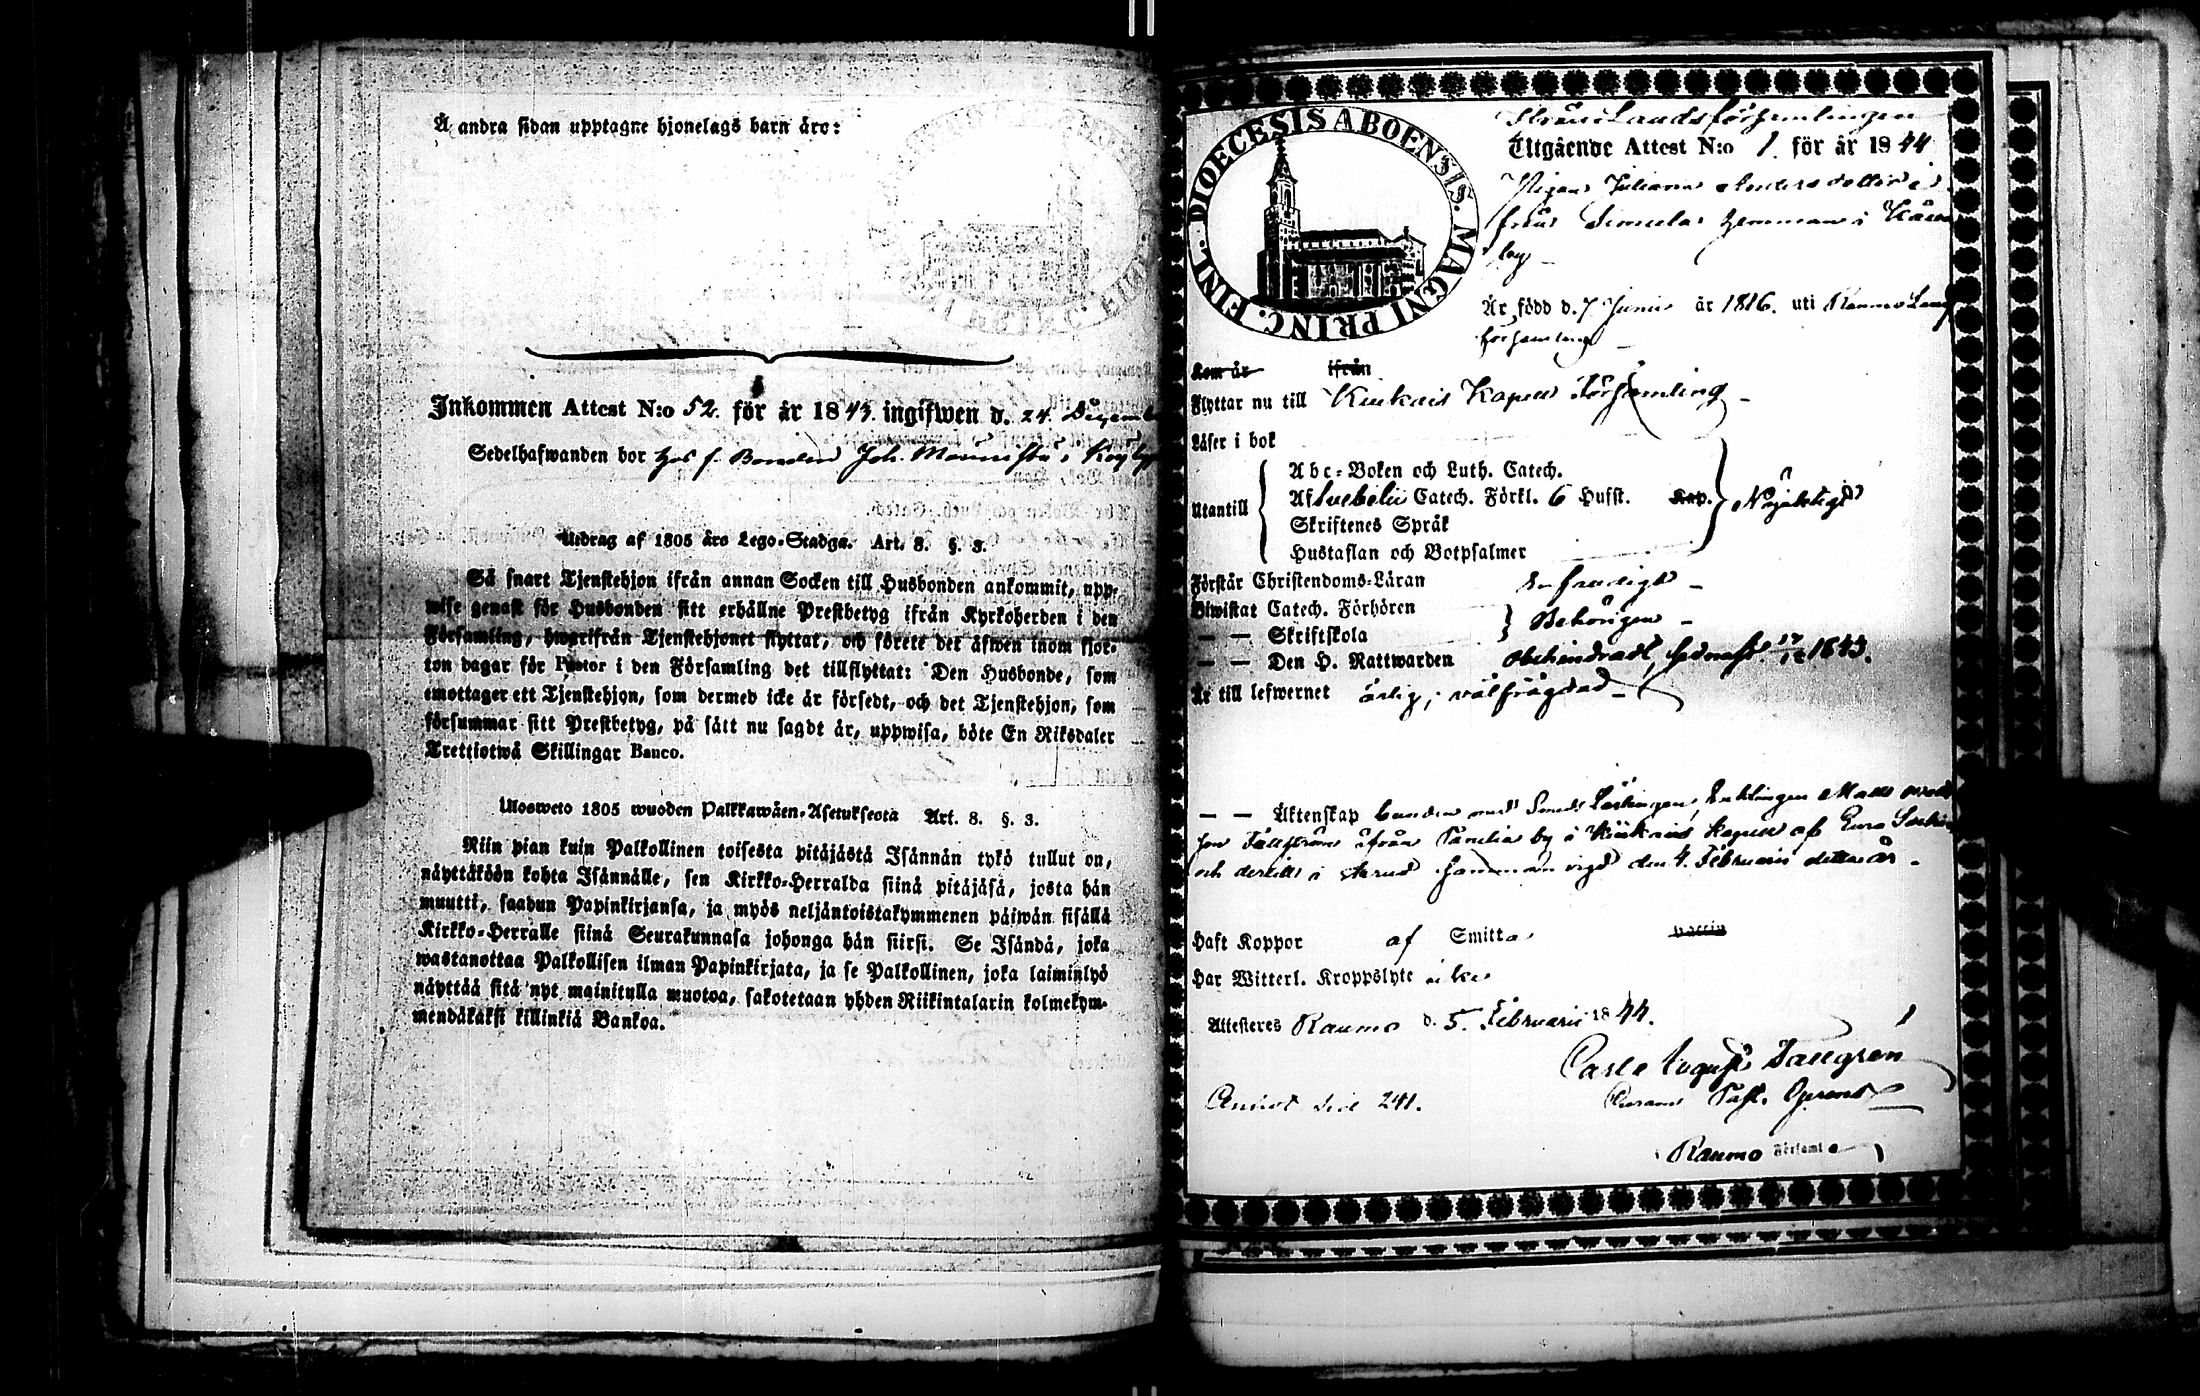 Å andra sidan upptagne hjonelags barn äro:
Inkommen Attest N:o 52. för år 1843. ingifwen d. 24. Decemb
Sedelhafwanden bor hos f. Bonden Joh.
Utdrag af 1805 års Lego-Stadga. Art. 8. §. 3.
Så snart Tjenstehjon ifrån annan Socken till Husbonden ankommit, upp-
wise genast för Husbonden sitt erhållne Prestbetyg ifrån Kyrkoherden i den
Församling, hwarifrån Tjenstehjonet flyttat, och förete det äfwen inom fjor-
ton dagar för Pastor i den Församling det tillflyttat: Den Husbonde, som
emottager ett Tjenstehjon, som dermed icke är försedt, och det Tjenstehjon, som
försummar sitt Prestbetyg, på sätt nu sagdt är, uppwisa, böte En Riksdaler
Trettiotwå Skillingar Banco.
Ulosweto 1805 wuoden Palkkawäen-Asetuksesta Art. 8. §. 3.
Niin pian kuin Palkollinen toisesta pitäjästä Isännän tykö tullut on,
näyttäköön kohta Isännälle, sen Kirkko-Herralda siinä pitäjäsä, josta hän
muutti, saadun Papinkirjansa, ja myös neljäntoistakymmenen päiwän sisällä
Kirkko-Herralle siinä Seurakunnasa johonga hän siirsi. Se Isändä, joka
wastanottaa Palkollisen ilman Papinkirjata, ja se Palkollinen, joka laiminlyö
näyttää sitä nyt mainitulla muotoa, sakotetaan yhden Riikintalarin kolmekym-
mendäkaksi killinkiä Bankoa.
DIOECESIS ABOENSIS. MAGNI PRINC. FINL.
Landsförsamlingen
Utgående Attest N:o 1. för år 1844
Pigan Juliana Andersdotter
från hemman i
by
Är född d. 7 Junii år 1816. uti Raumo Lands
församling
Kom år ifrån
Flyttar nu till Kiukais Kapell Församling
Läser i bok
Utantill
Abc-Boken och Luth. Catech.
Af Svebelii Catech. Förkl. 6 Hufst. Kap.
Skriftenes Språk
Hustaflan och Botpsalmer
Nöjaktigt
Förstår Christendoms-Läran enfaldigt
Biwistat Catech. Förhören
— — Skriftskola
Behörigen
— — Den H. Nattwarden obehindradt, sednast 17/12 1843.
Är till lefwernet ärlig, välfrägdad
— — Äktenskap bunden med
son Fällström ifrån by i Kiukais Kapell af Eura Socken
och dertill i sammanvigd den 4. Februarii detta år.
Haft Koppor af Smitta Vaccin
Har Witterl. Kroppslyte icke
Attesteres Raumo d. 5. Februarii 1844.
Carl August Tallgrén
Past.
Annot. sid 241.
Raumo Församl